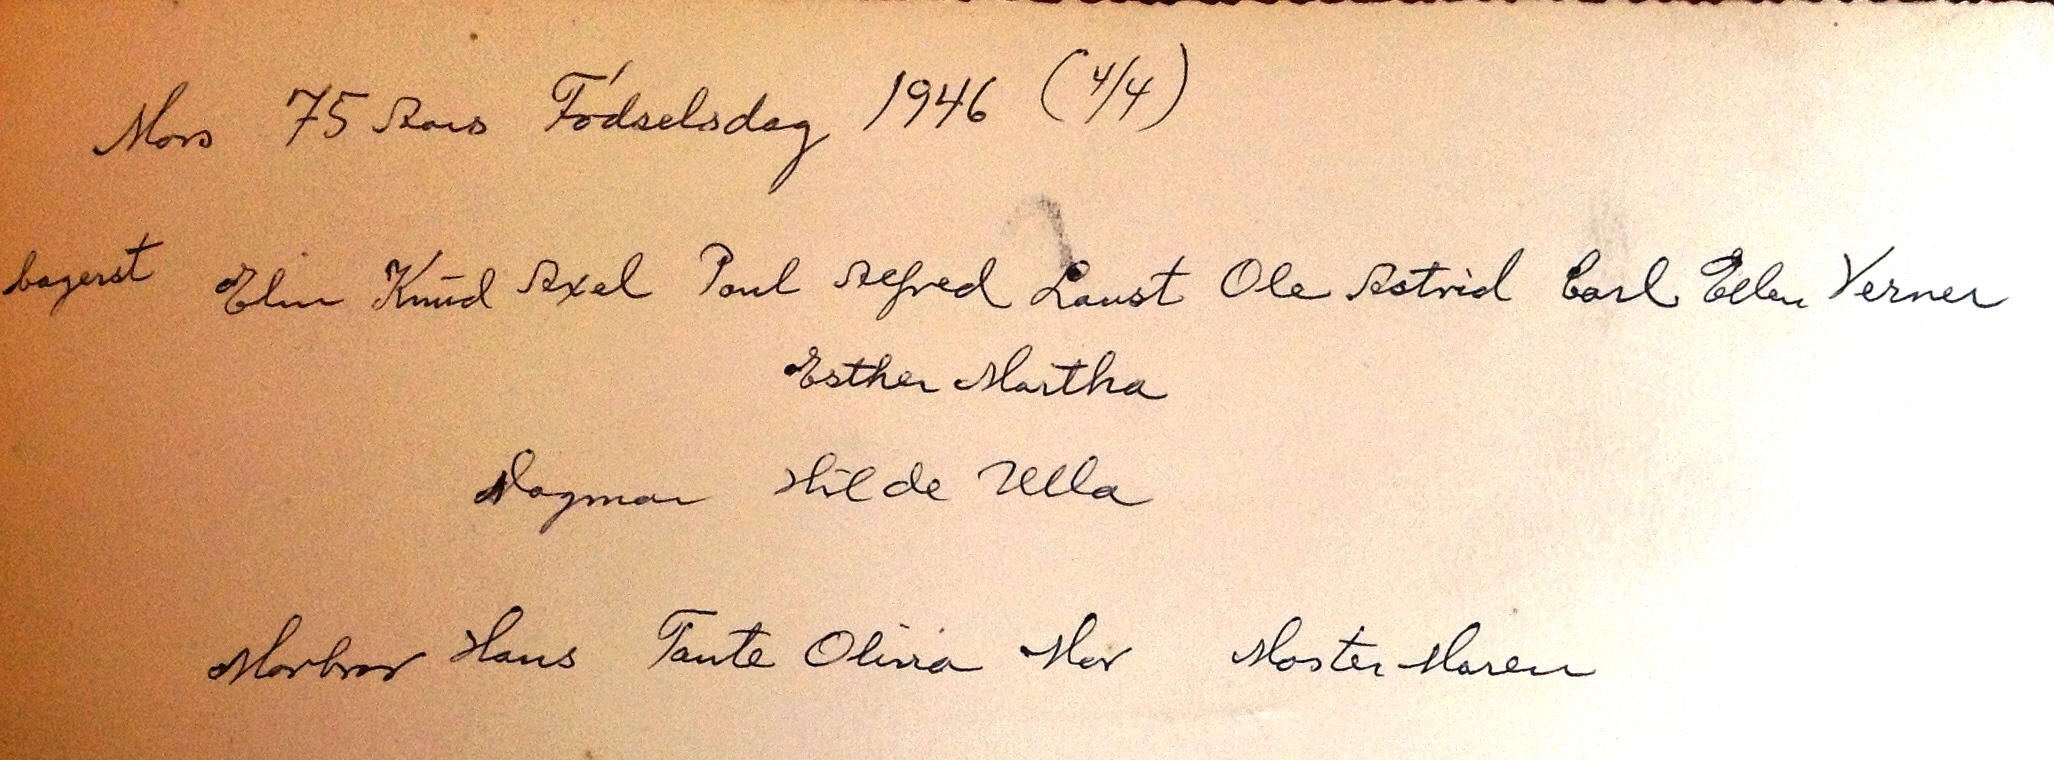 Mors 75 Aars Fødselsdag 1946 (4/4)
bagerst Elin Knud Axel Poul Alfred Laust Ole Astrid Carl Ellen Verner
Esther Martha
Dagmar Hilde Ulla
Morbror Hans Tante Olivia Mor Moster Maren